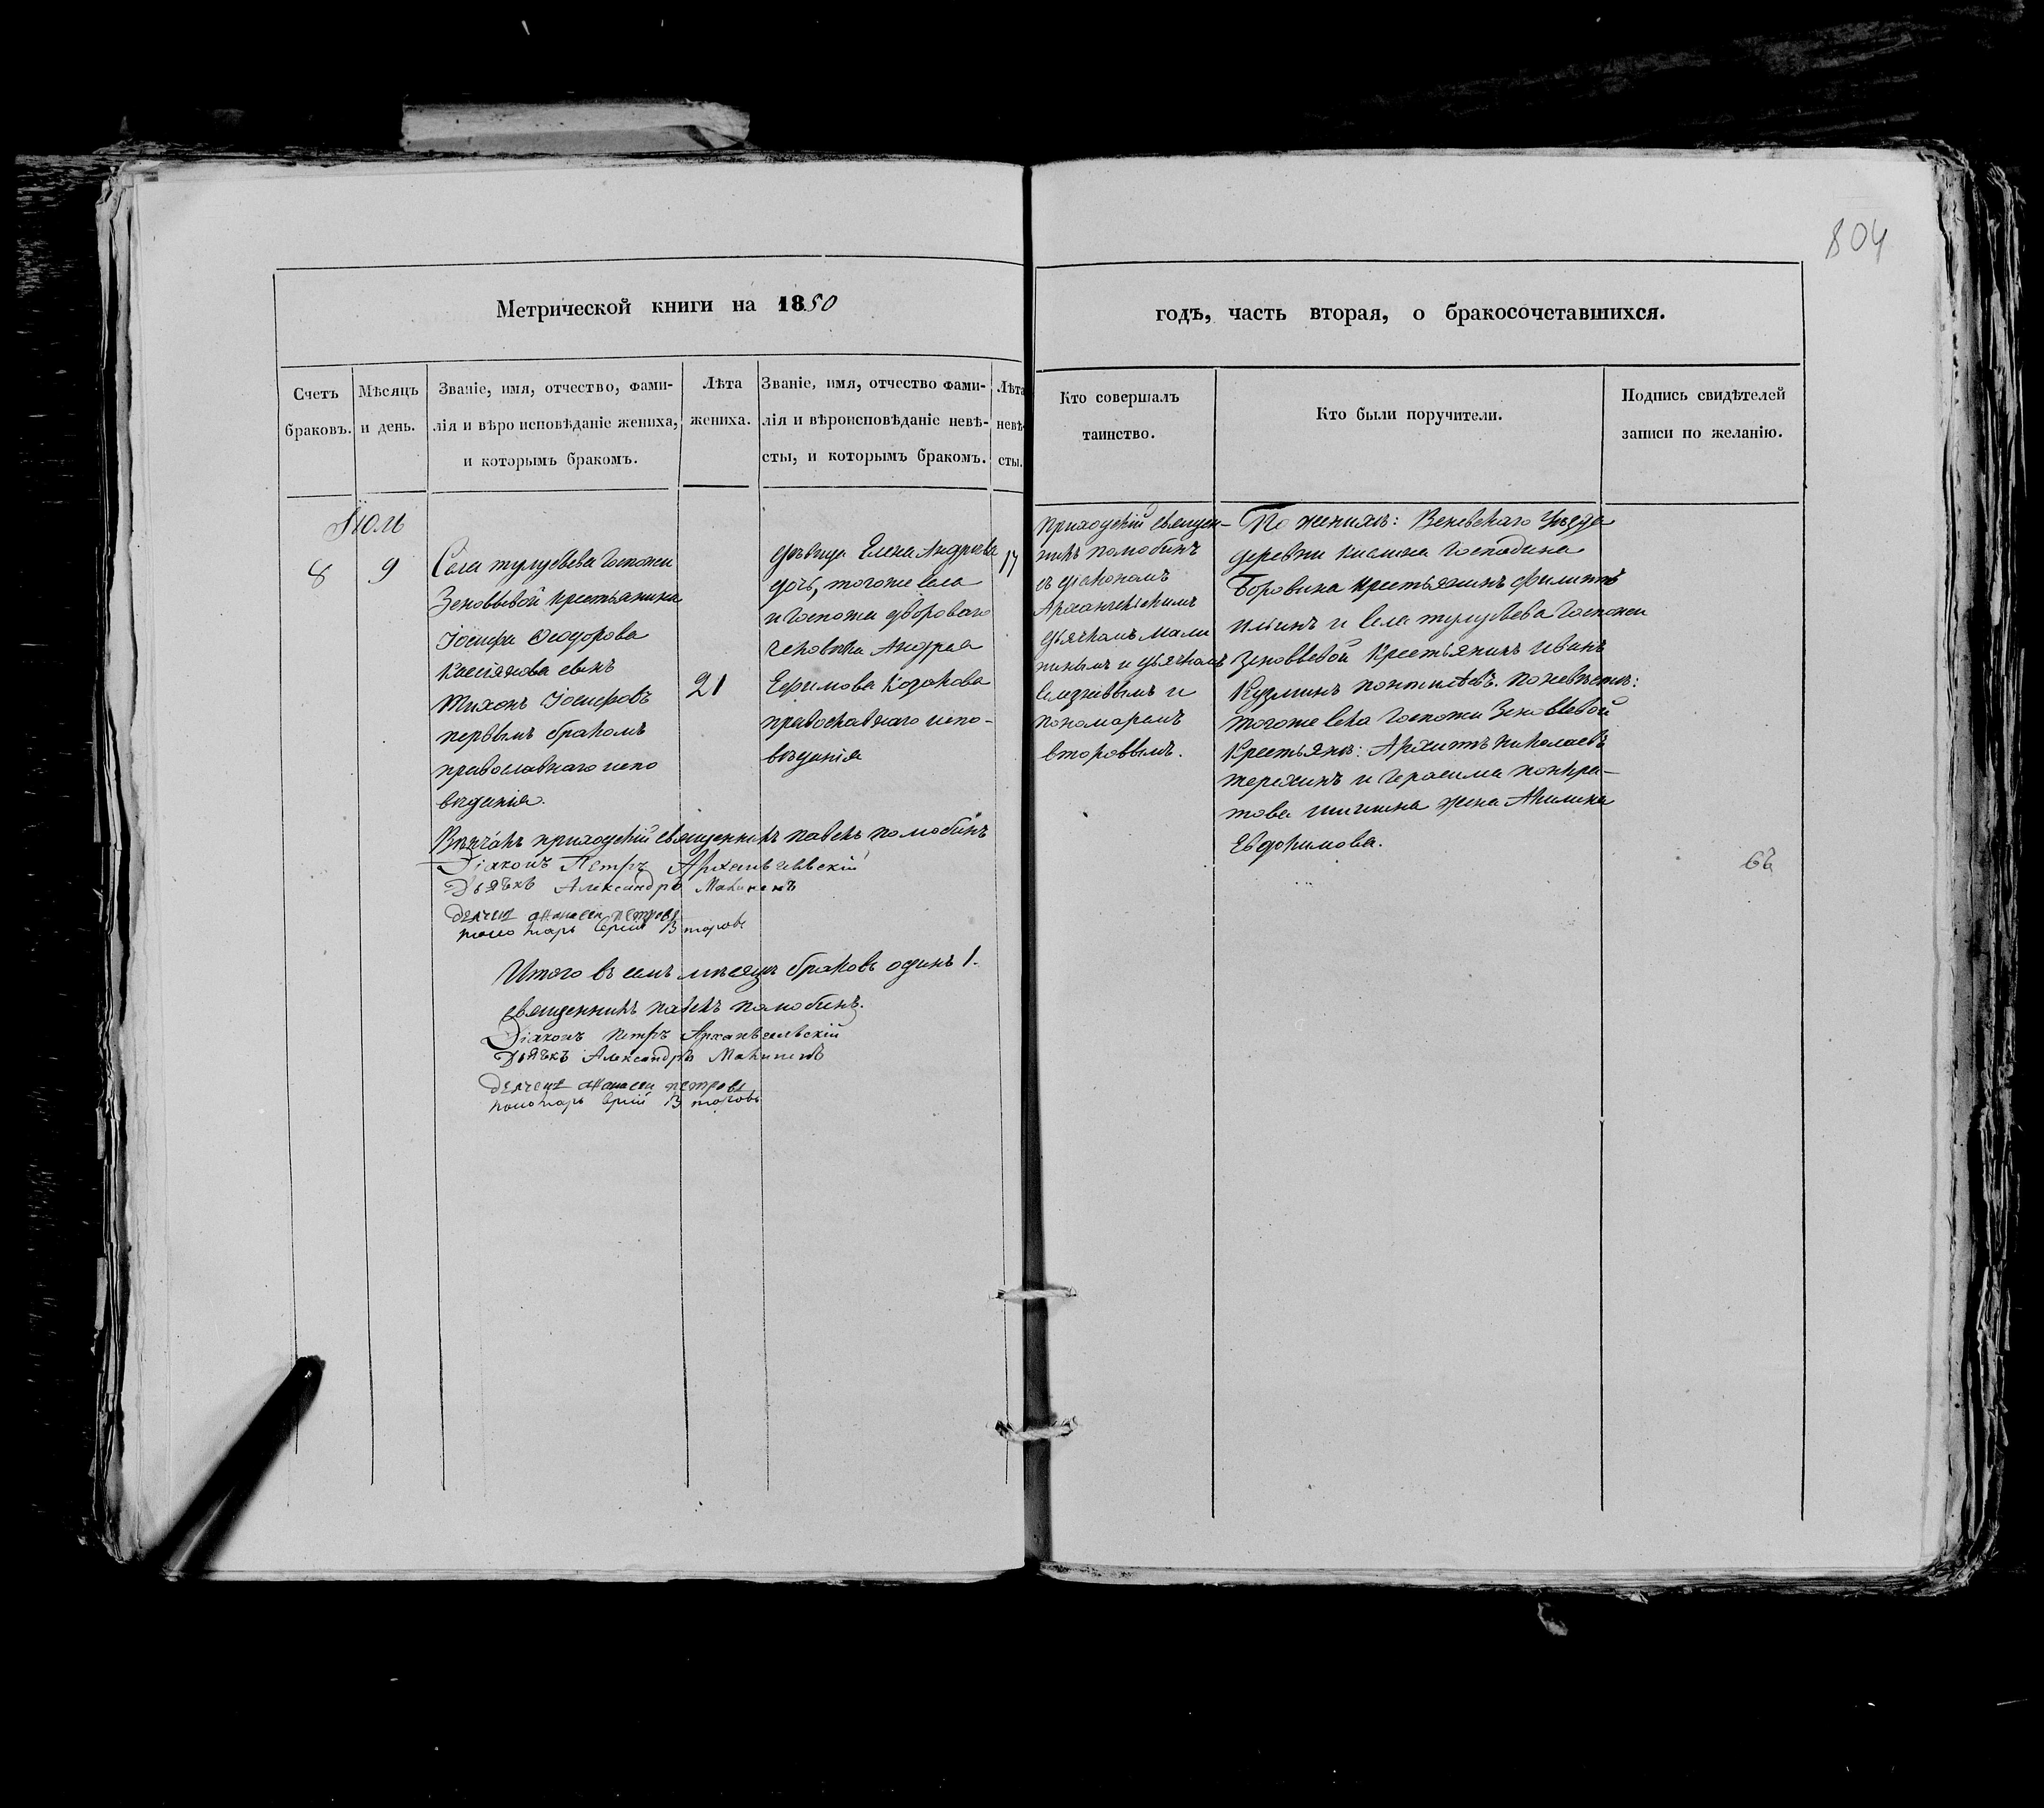 804
Метрической книги на 1850
годъ, часть вторая, о бракосочетавшихся.
Счетъ
браковъ.
Мѣсяцъ
и день.
Званіе, имя, отчество, фами-
лія и вѣро исповѣданіе жениха,
и которымъ бракомъ.
Лѣта
жениха.
Званіе, имя, отчество фами-
лія и вѣроисповѣданіе невѣ-
сты, и которымъ бракомъ.
Лѣта
невѣ-
сты.
Кто совершалъ
таинство.
Кто были поручители.
Подпись свидѣтелей
записи по желанію.
Іюль
8
9
Села тулубьева Госпожи
Зеновьевой крестьянина
Іосифа Ѳеодорова
сынъ
Тихонъ Іосифовъ
первымъ бракомъ
православнаго испо
вѣданія.
21
дѣвица Елена Андреева
дочь, тогоже села
и Госпожи двороваго
человѣка Андрея
Ефимова Козакова
православнаго испо-
вѣданія
17
приходскій священ-
никъ
съ діакономъ
Архангельскимъ
дьячкомъ Мали
нинымъ и дьячкомъ
и
пономаремъ
второвымъ.
По женихѣ: Веневскаго Уѣзда
деревни Господина
Боровина крестьянинъ филиппъ
ильинъ и села тулубьева Госпожи
Зеновьевой крестьянинъ иванъ
Кузминъ по невѣстѣ:
тогоже села Госпожи Зеновьевой
крестьяне: Архиппъ николаевъ
терехинъ и Герасима
жена Акилина
Евдокимова.
Вѣнчалъ приходскій священникъ павелъ
Діаконъ Петръ Архангельскій
Дьячкъ Александръ Малининъ
дьячекъ афанасей петровъ
пономарь Второвъ
66
Итого въ семъ мѣсяцѣ браковъ одинъ 1.
священникъ павелъ
Діаконъ Петръ Архангельскій
Дьячкъ Александръ Малининъ
дьячекъ афанасей петровъ
пономарь Второвъ